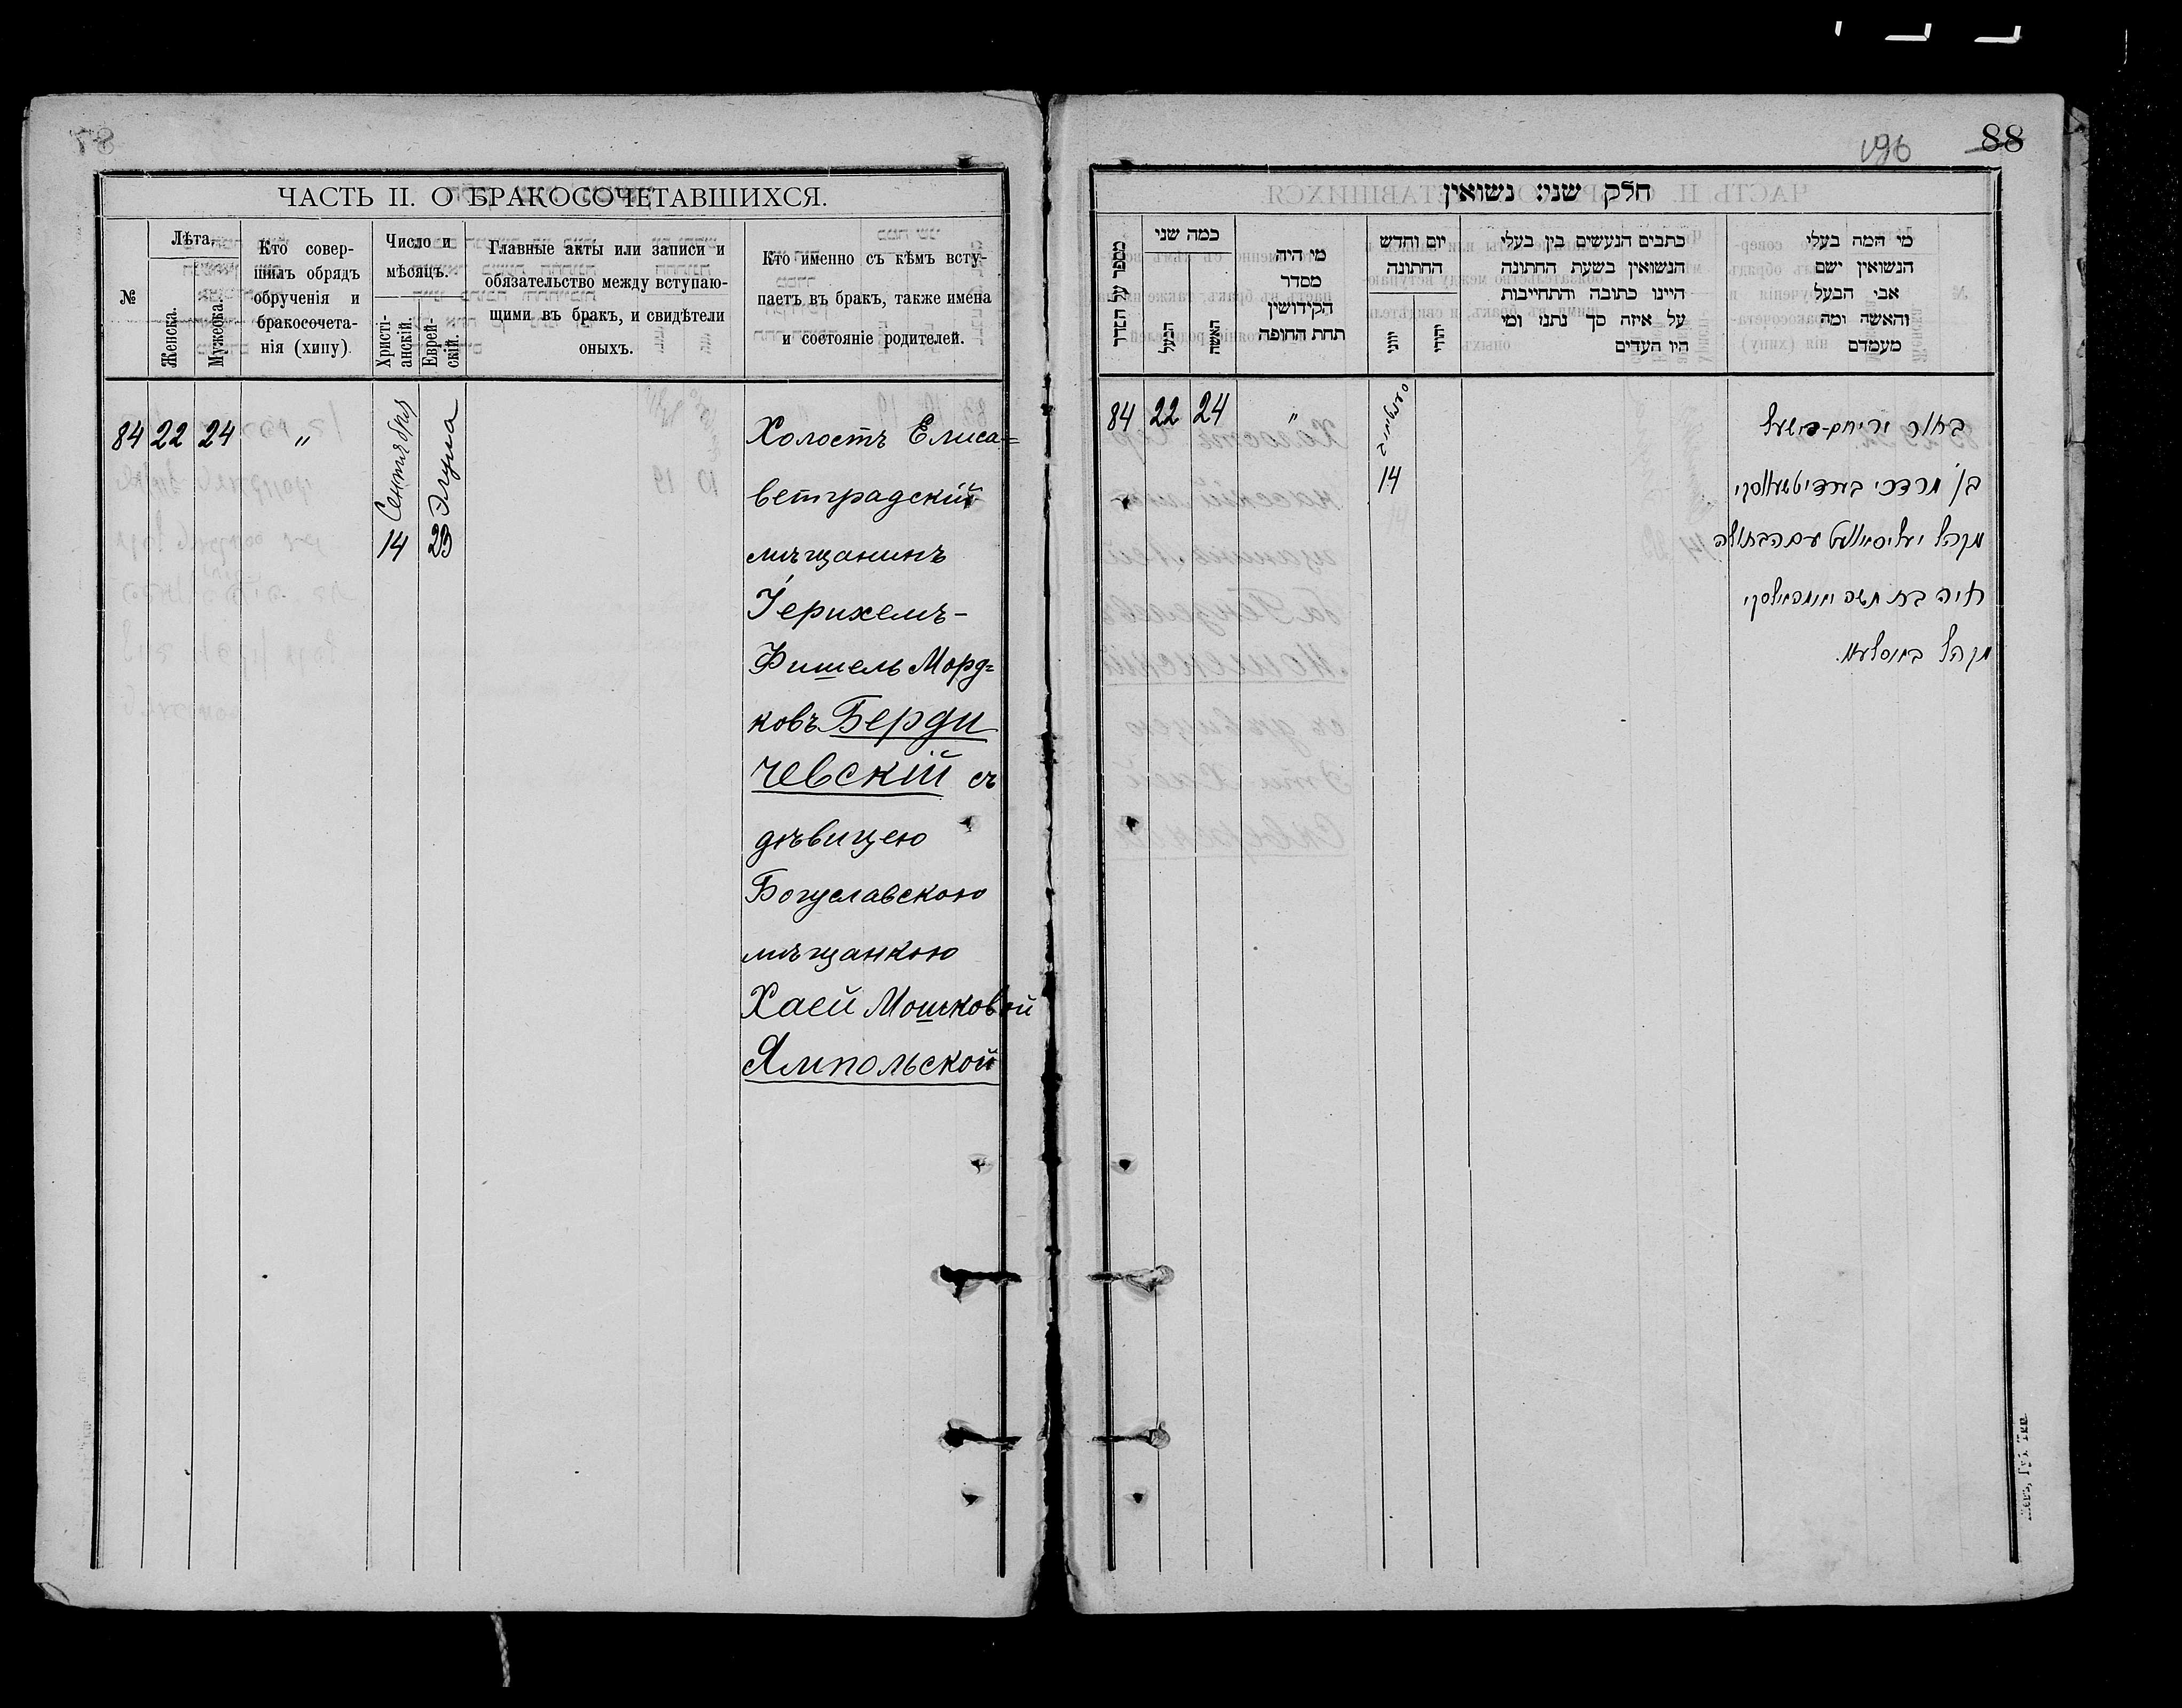 ЧАСТЬ II. О БРАКОСОЧЕТАВШИХСЯ.
№
Лѣта.
Женска.
Мужеска.
Кто совер-
шилъ обрядъ
обрученія и
бракосочета-
нія (хипу)
Число и
мѣсяцъ.
Христі-
анскій.
Еврей-
скій.
Главные акты или записи и
обязательство между вступаю-
щими въ бракъ, и свидѣтели
оныхъ.
Кто именно съ кѣмъ всту-
паетъ въ бракъ, также имена
и состояніе родителей.
84 22 24 "
Сентября
14
Элула
23
Холостъ Елиса=
ветградскій
мѣщанинъ
Іерихемъ-
Фишель Морд=
ковъ Берди
чевскій съ
дѣвицею
Богуславскою
мѣщанкою
Хаей Мошковой
Ямпольской
88
196
חלק שני: נשואין
מספר על הסדר
כמה שני
הבעל
האשה
מי היה
מסדר
הקידושין
תחת החופה
יום וחדש
החתונה
יוני
יהודי
כתבים הנעשים בין בעלי
הנשואין בשעת החתונה
היינו כתובה והתחייבות
על איזה סך נתנו ומי
היו העדים
מי המה בעלי
הנשואין ישם
אבי הבעל
והאשה ומה
מעמדם
84 22 24 "
14
בחור ירוחם-פישעל
בן מרדכי בערדיטשעווסקי
מקהל יעליסאוועט עם הבתולה
חיה בת משה יאמפאלסקי
מקהל באסלעוו.